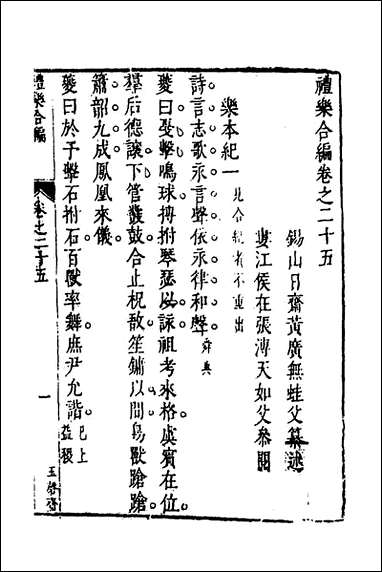 禮樂合編卷之二十五
錫山日齋黃廣無蛙父纂述
婁江侯在張溥天如父參閱
樂本紀一 見合紀者不重出
詩言志歌永言聲依永律和聲 舜典
夔曰戞擊鳴球搏拊琴瑟以詠祖考來格虞賓在位
羣后德讓下管鼗鼓合止柷敔笙鏞以間鳥獸蹌蹌
簫韶九成鳳凰來儀
夔曰於予擊石拊石百獸率舞庶尹允諧 已上益稷
禮樂合編
卷之二十五
一
玉磬齋